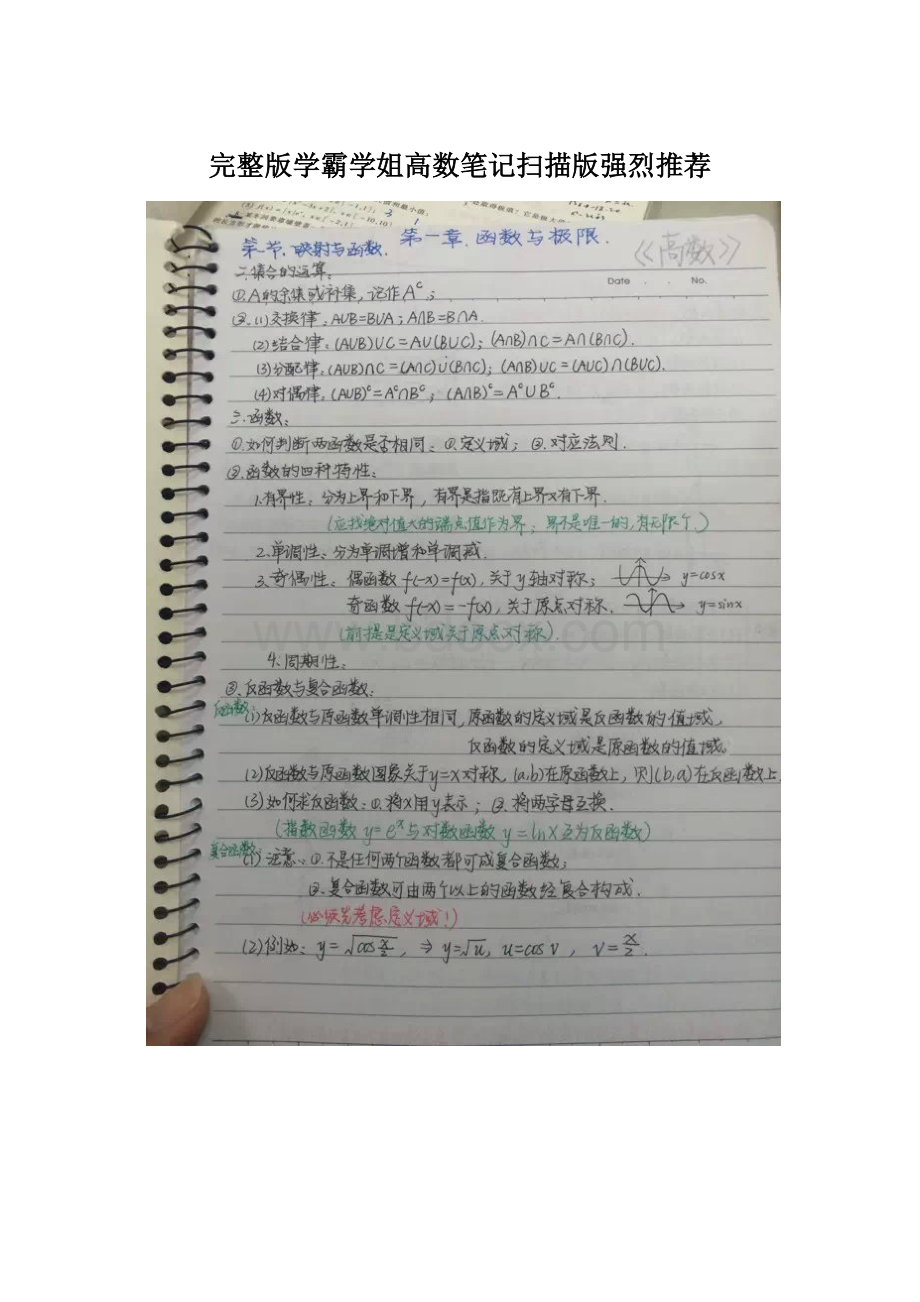 完整版学霸学姐高数笔记扫描版强烈推荐
第一章.函数与极限.
《高数》
第一节.映射与函数.
二.集合的运算。
Date . . No.
①.A的余集或补集,记作Aᶜ;
②.(1)交换律:A∪B=B∪A;A∩B=B∩A.
(2)结合律:(A∪B)∪C=A∪(B∪C);(A∩B)∩C=A∩(B∩C).
(3)分配律:(A∪B)∩C=(A∩C)∪(B∩C);(A∩B)∪C=(A∪C)∩(B∪C).
(4)对偶律:(A∪B)ᶜ=Aᶜ∩Bᶜ;(A∩B)ᶜ=Aᶜ∪Bᶜ.
三.函数:
①.如何判断两函数是否相同:①.定义域;②.对应法则.
②.函数的四种特性:
1.有界性:分为上界和下界,有界是指既有上界又有下界.
(应找绝对值大的端点值作为界;界不是唯一的,有无限个.)
2.单调性:分为单调增和单调减.
3.奇偶性:偶函数f(-x)=f(x),关于y轴对称; y=cosx
奇函数f(-x)=-f(x),关于原点对称. y=sinx
(前提是定义域关于原点对称).
4.周期性:
③.反函数与复合函数:
反函数:(1)反函数与原函数单调性相同,原函数的定义域是反函数的值域,
反函数的定义域是原函数的值域。
(2)反函数与原函数图象关于y=x对称,(a,b)在原函数上,则(b,a)在反函数上.
(3)如何求反函数:①.将x用y表示;②.将两字母互换.
(指数函数y=eˣ与对数函数y=lnx互为反函数)
复合函数:(1)注意:①.不是任何两个函数都可成复合函数;
②.复合函数可由两个以上的函数经复合构成.
(必须先考虑定义域!)
(2)例如:y=√cos x/2,⇒y=√u,u=cosv,v=x/2.